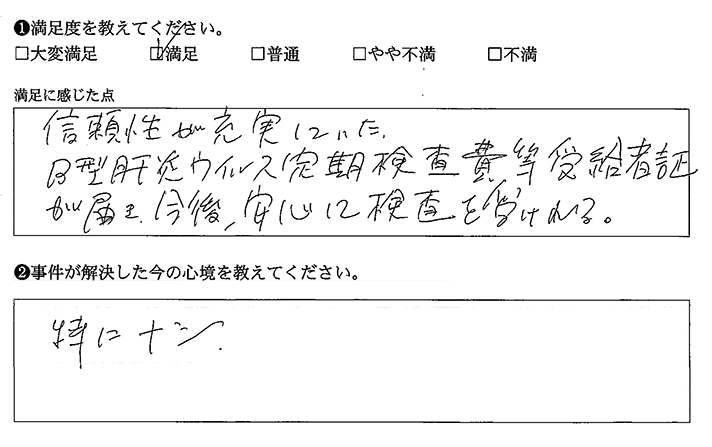 ❶満足度を教えてください。
□大変満足 ☑満足 □普通 □やや不満 □不満
満足に感じた点
信頼性が充実していた。
B型肝炎ウイルス定期検査費等受給者証
が届き、今後、安心に検査を受けれる。
❷事件が解決した今の心境を教えてください。
特にナシ.